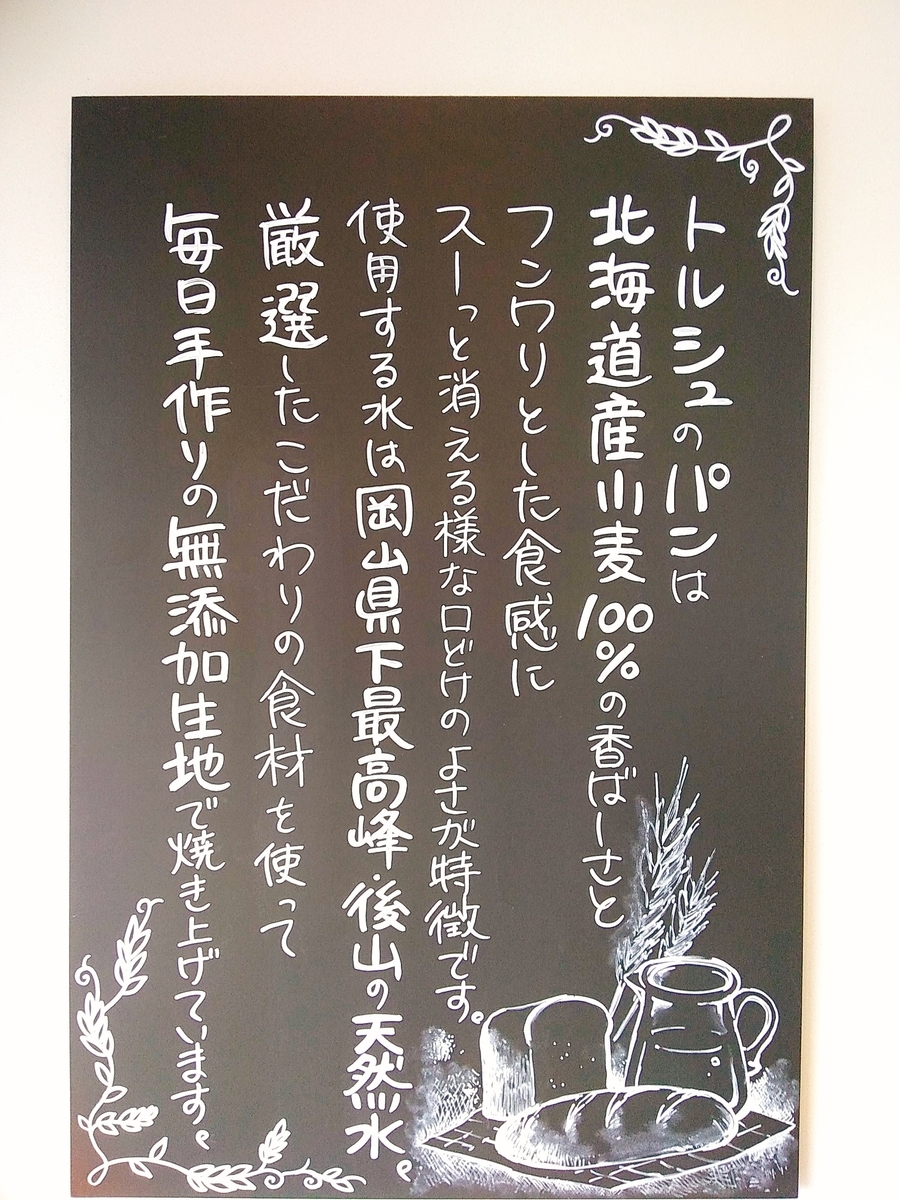 トルシュのパンは
北海道産小麦100%の香ばーさと
フンワリとした食感に
スーっと消える様な口どけのよさが特徴です。
使用する水は岡山県下最高峰・後山の天然水。
厳選したこだわりの食材を使って
毎日手作りの無添加生地で焼き上げています。